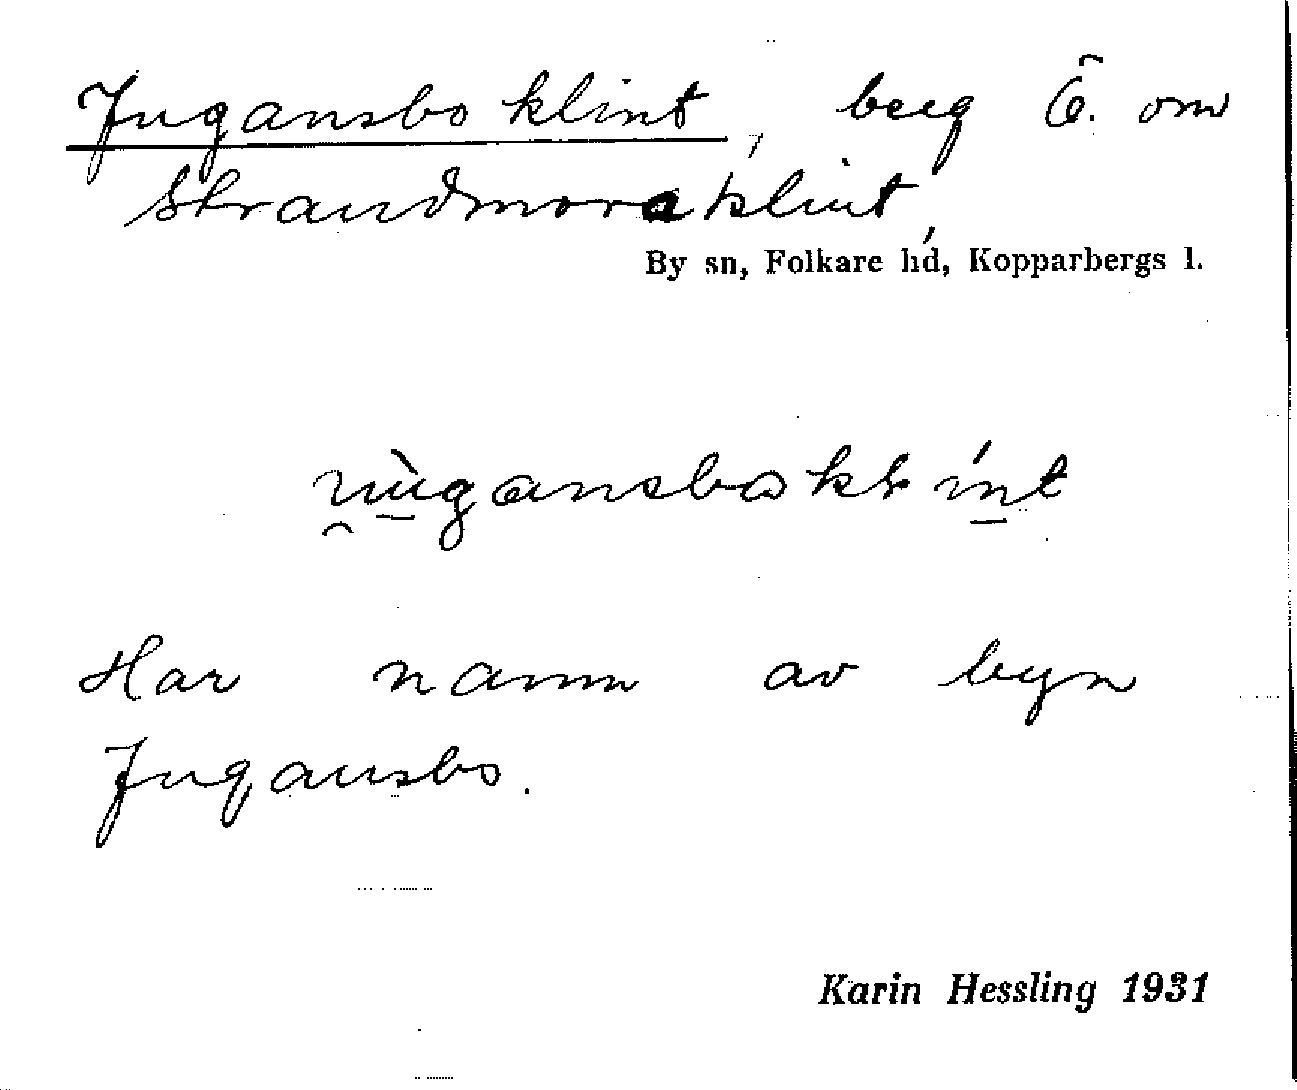 Jugansbo klint, berg Ö. om
Strandmora klint,
By sn, Folkare hd, Kopparbergs l.
Har namn av byn
Jugansbo.
Karin Hessling 1931